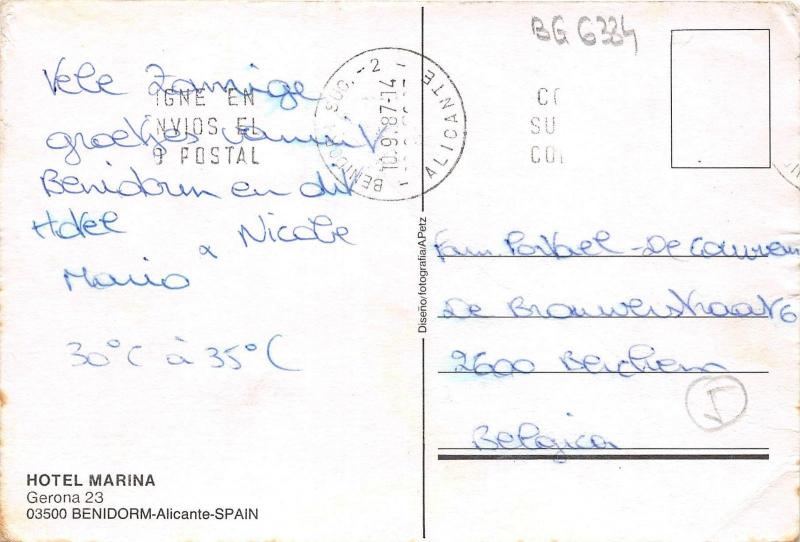 BG 6334
Vele Zonnige
groetjes vanuit
Benidorm en dit
Hotel
Nicole
&
Mario
30°C à 35°C
IGNE EN
NVIOS EL
POSTAL
BENIDORM SUC. - 2
10.9.87-14
ALICANTE
CO
SU
COD
Diseño/fotografía/A.Petz
Fam. Portael - De
De Brouwerstraat 6
2600 Berchem
Belgica
HOTEL MARINA
Gerona 23
03500 BENIDORM-Alicante-SPAIN